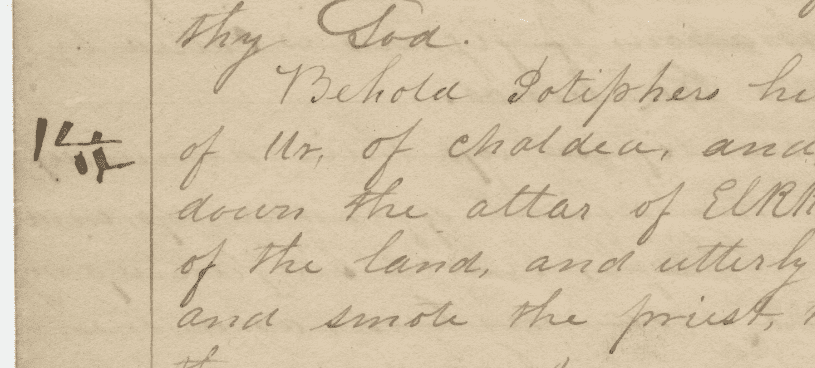 thy God.
Behold Potiphers hi
of Ur, of chaldea, and
down the altar of ElKK
of the land, and utterly
and smote the priest,